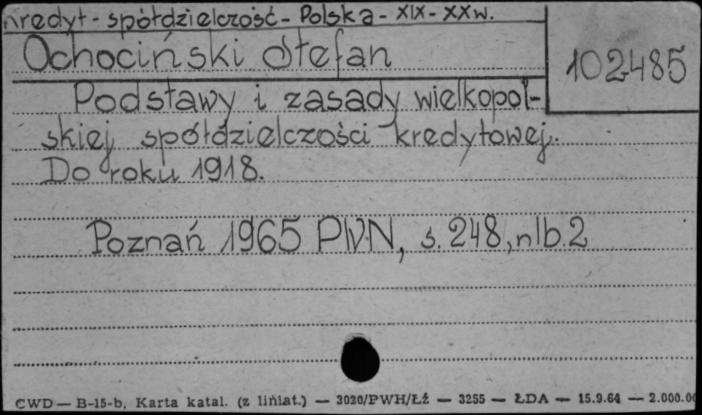 kredyt - spółdzielczość - Polska - XIX - XXw.
Ochociński Stefan
102485
Podstawy i zasady wielkopol-
skiej spółdzielczości kredytowej.
Do roku 1918.
Poznań 1965 PWN, s. 248, nlb. 2
CWD — B-15-b, Karta katal. (z liniat.) — 3020/PWH/Łź — 3255 — ŁDA — 15.9.64 — 2.000.00